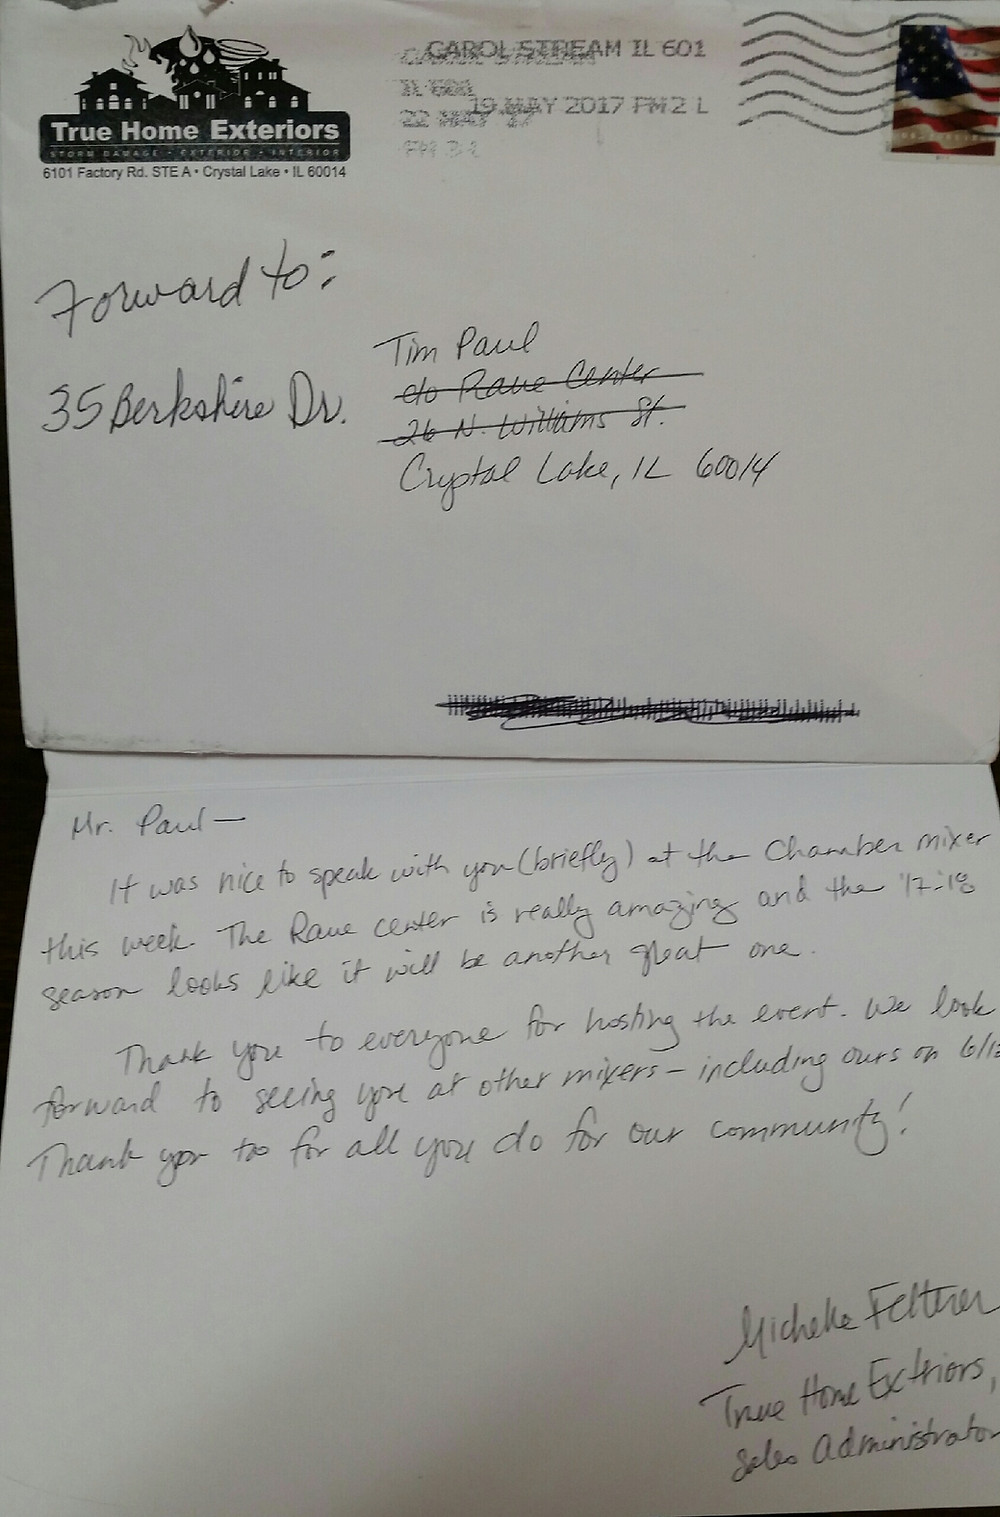 True Home Exteriors
STORM DAMAGE • EXTERIOR • INTERIOR
6101 Factory Rd. STE A • Crystal Lake • IL 60014
CAROL STREAM IL 601
19 MAY 2017 PM 2 L
CAROL STREAM
IL 601
22 MAY '17
PM 3 L
Forward to:
35 Berkshire Dr.
Tim Paul
c/o Raue Center
26 N. Williams St.
Crystal Lake, IL 60014
Mr. Paul—
It was nice to speak with you (briefly) at the Chamber mixer
this week. The Raue center is really amazing and the '17-'18
season looks like it will be another great one.
Thank you to everyone for hosting the event. We look
forward to seeing you at other mixers – including ours on
Thank you too for all you do for our community!
Michelle Feltner
True Home Exteriors,
Sales Administrator